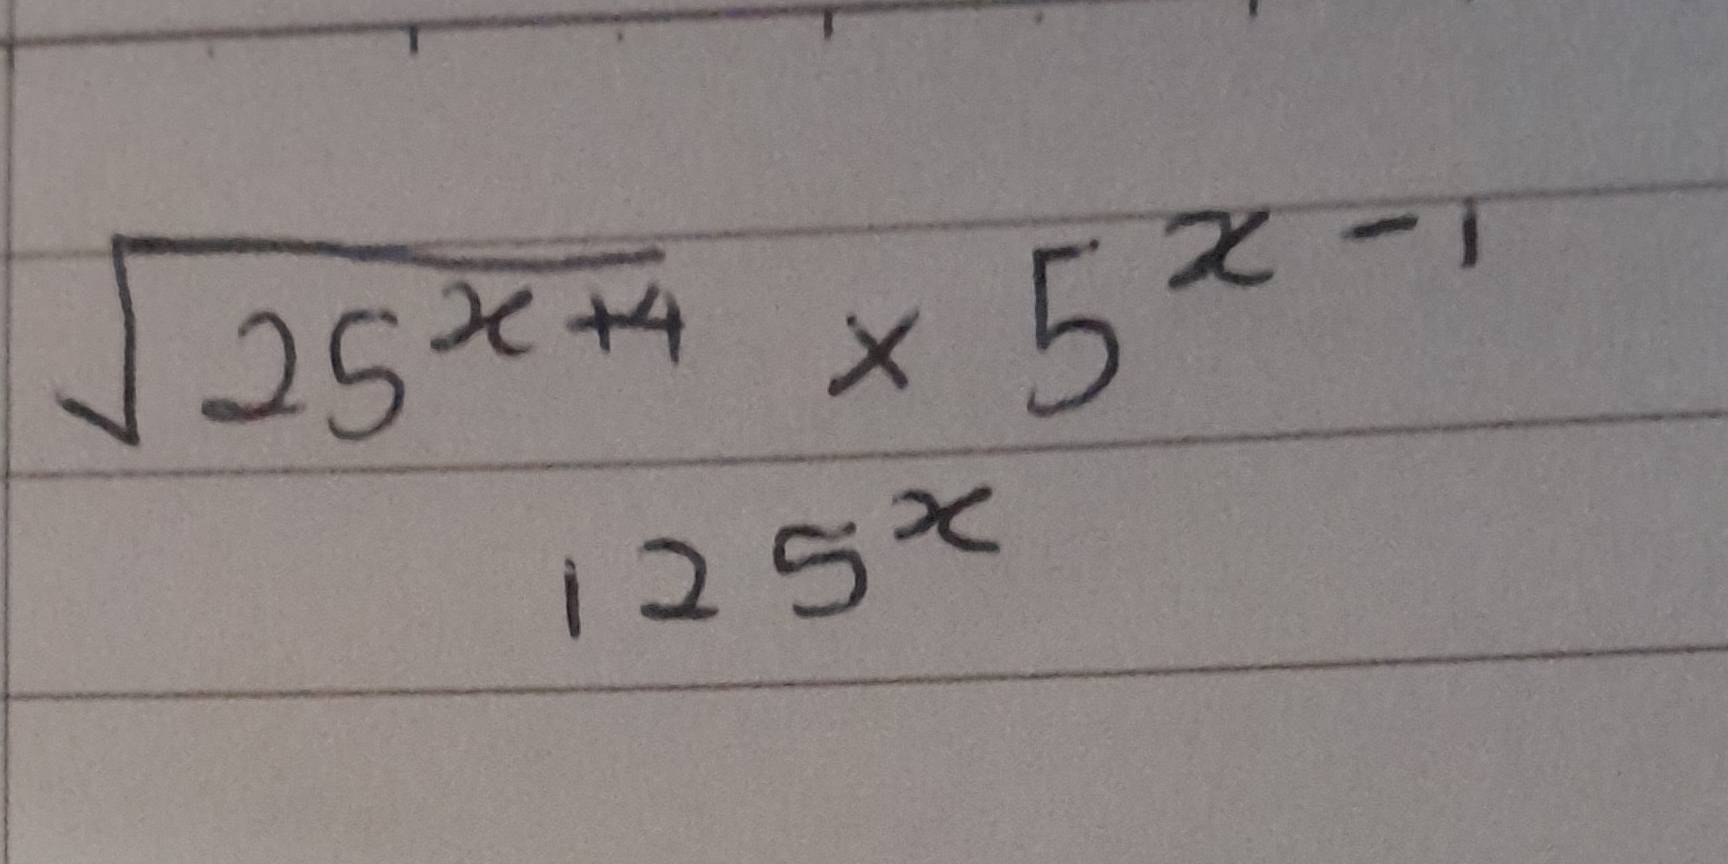 √25^(x+4) × 5^(x-1)
125^x